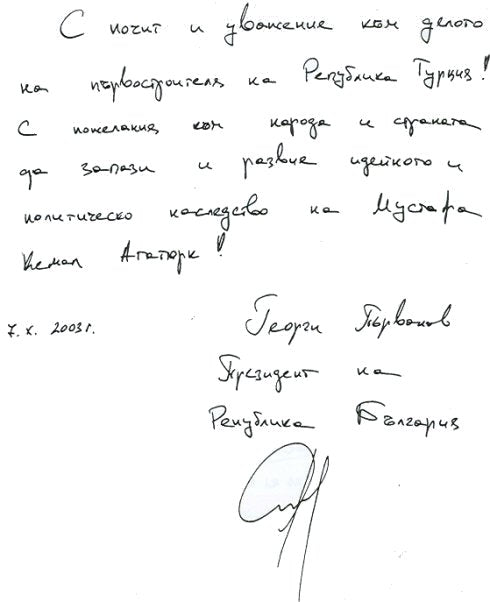 С почит и уважение към делото
на първостроителя на Република Турция!
С пожелания към народа и страната
да запази и развие идейното и
политическо наследство на Мустафа
Кемал Ататюрк!
7. X. 2003 г.
Георги Първанов
Президент на
Република България